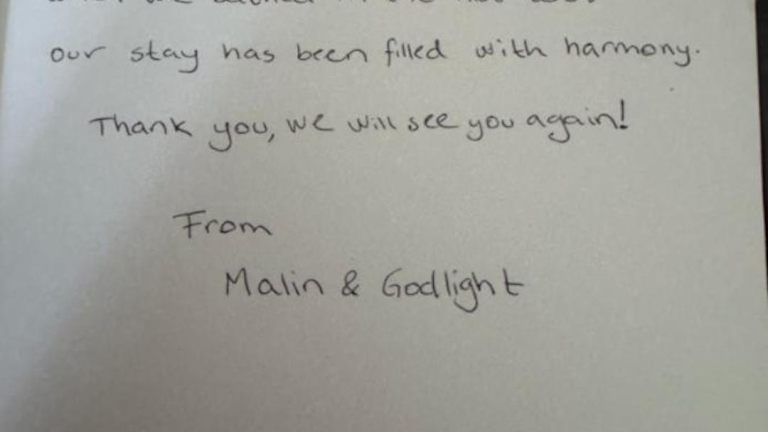 our stay has been filled with harmony.
Thank you, we will see you again!
From
Malin & Godlight